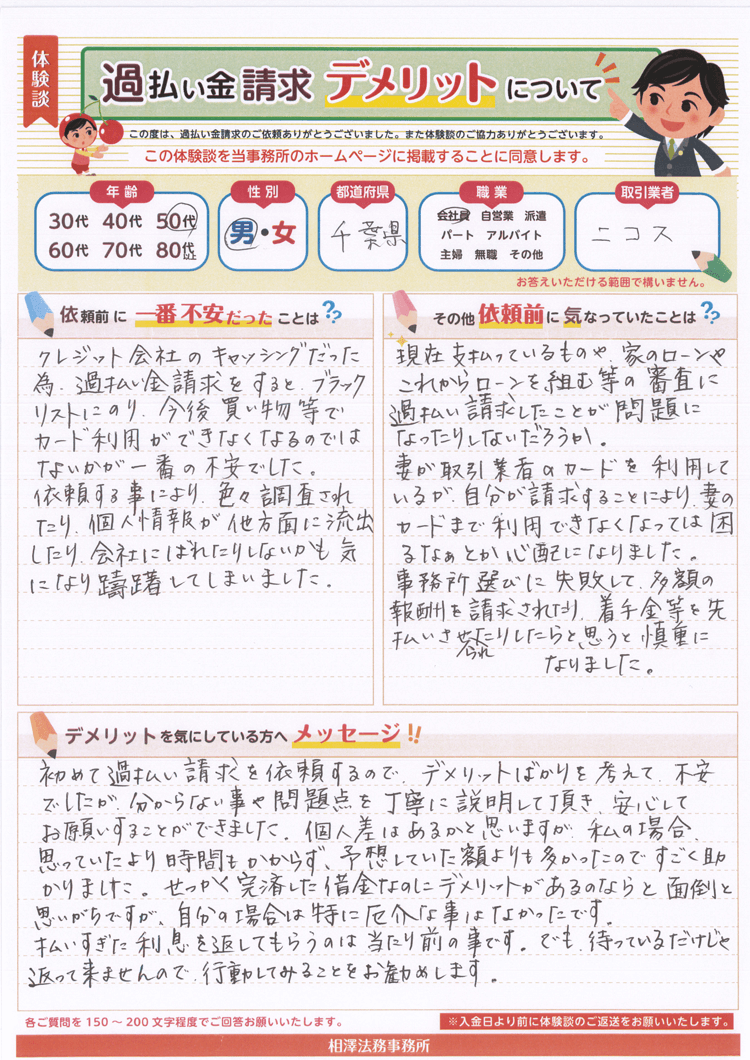 体験談
過払い金請求 デメリットについて
この度は、過払い金請求のご依頼ありがとうございました。また体験談のご協力ありがとうございます。
この体験談を当事務所のホームページに掲載することに同意します。
年齢 性別 都道府県 職業 取引業者
30代 40代 50代
60代 70代 80代以上
男・女
千葉県
会社員 自営業 派遣
パート アルバイト
主婦 無職 その他
ニコス
お答えいただける範囲で構いません。
依頼前に 一番不安だった ことは??
クレジット会社のキャッシングだった
為、過払い金請求をすると、ブラック
リストにのり、今後買い物等で
カード利用ができなくなるのでは
ないかが一番の不安でした。
依頼する事により、色々調査され
たり、個人情報が他方面に流出
したり、会社にばれたりしないかも気
になり躊躇してしまいました。
その他 依頼前に気なっていたことは??
現在支払っているものや、家のローンや
これからローンを組む等の審査に
過払い請求したことが問題に
なったりしないだろうか。
妻が取引業者のカードを利用して
いるが、自分が請求することにより、妻の
カードまで利用できなくなっては困
るなぁとか心配になりました。
事務所選びに失敗して、多額の
報酬を請求されたり、着手金等を先
払いさせたりしたらと思うと慎重に
られ
なりました。
デメリットを気にしている方へ メッセージ!!
初めて過払い請求を依頼するので、デメリットばかりを考えて、不安
でしたが、分からない事や問題点を丁寧に説明して頂き、安心して
お願いすることができました。個人差はあるかと思いますが、私の場合、
思っていたより時間もかからず、予想していた額よりも多かったのですごく助
かりました。せっかく完済した借金なのにデメリットがあるのならと面倒と
思いがちですが、自分の場合は特に厄介な事はなかったです。
払いすぎた利息を返してもらうのは当たり前の事です。でも、待っているだけじゃ
返って来ませんので、行動してみることをお勧めします。
各ご質問を150～200文字程度でご回答お願いいたします。
※入金日より前に体験談のご返送をお願いいたします。
相澤法務事務所